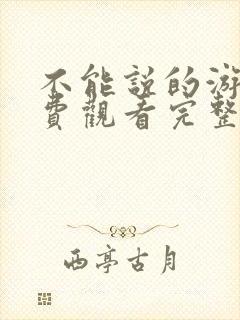 不能説的游
費觀看完整
西亭古月